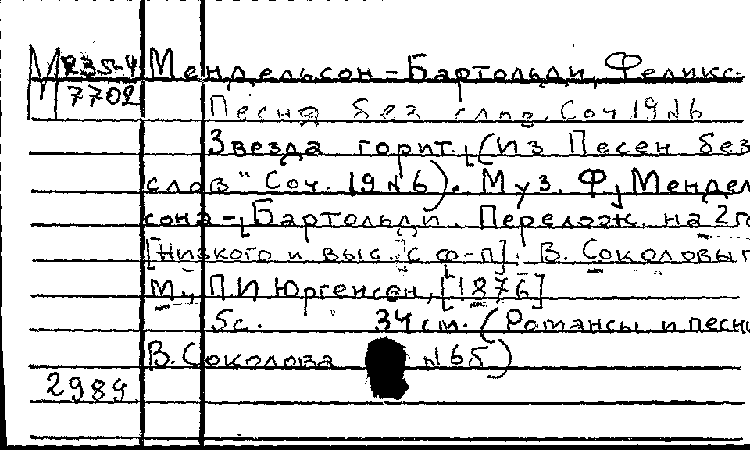 М 235-4 Мендельсон-Бартольди, Феликс.
7702 Песня без слов. Соч 19 №6
Звезда горит. (Из Песен без
слов" Соч. 19 №6). Муз. Ф. Мендел
сона-Бартольди. Перелож. на 2 г
[низкого и выс. с ф-п]. В. Соколовы
М., П.И Юргенсон, [1876]
5с. 34 см. (Романсы и песн
В. Соколова №65)
2989